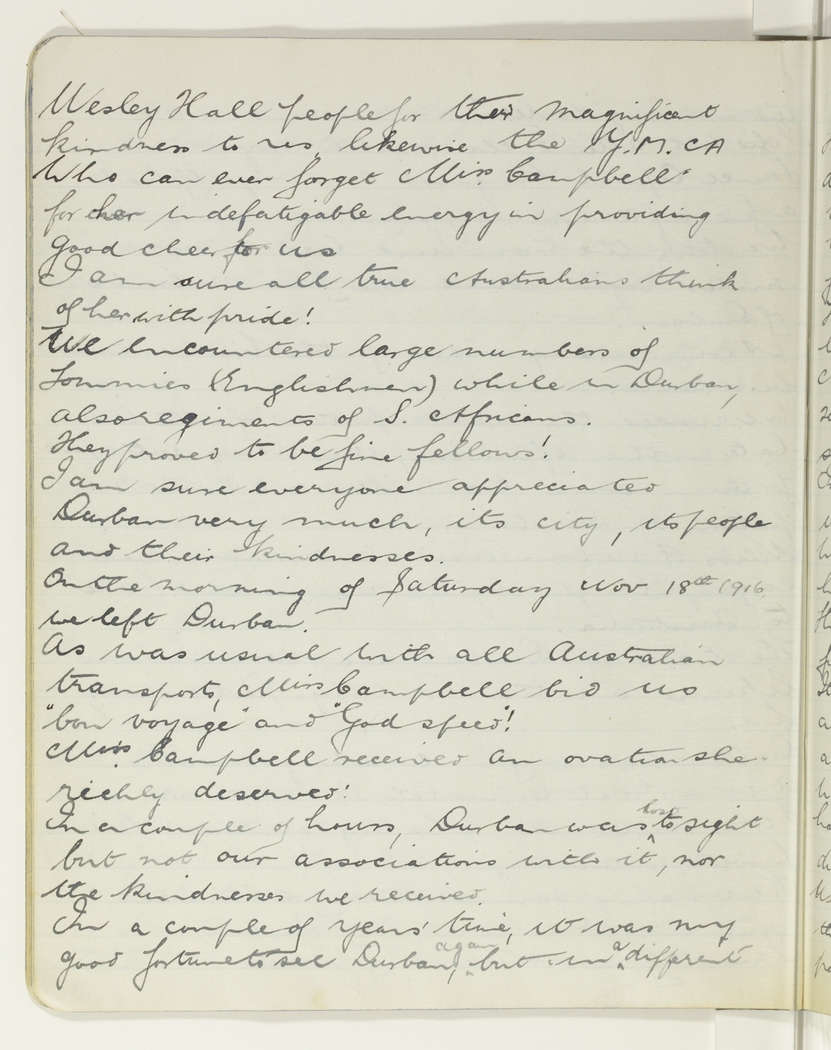 Wesley Hall people for their magnificent
kindness to us, likewise the Y.M.CA
Who can ever forget Miss Campbell
for her indefatigable energy in providing
good cheer for us
I am sure all true Australians think
of her with pride!
We encountered large numbers of
Tommies (Englishmen) while in Durban,
also regiments of S. Africans.
They proved to be fine fellows!
I am sure everyone appreciated
Durban very much, its city, its people
and their kindnesses.
On the morning of Saturday Nov 18th 1916
we left Durban.
As was usual with all Australian
transports, Miss Campbell bid us
"bon voyage" and "God speed"!
Miss. Campbell received an ovation she
richly deserved!
In a couple of hours, Durban was lost to sight
but not our associations with it, nor
the kindnesses we received.
In a couple of years' time, it was my
good fortune to see Durban again, but in a different